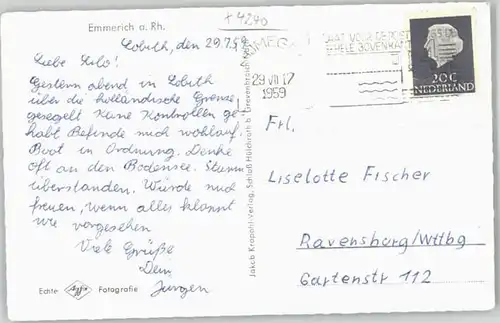 + 4240
Emmerich a. Rh.
Lobith, den 29.7.59
Liebe Lilo!
Gestern abend in Lobith
über die holländische Grenze
gesegelt Keine Kontrollen ge-
habt Befinde mich wohlauf.
Boot in Ordnung. Denke
oft an den Bodensee. Sturm
überstanden. Würde mich
freuen, wenn alles klappt
wie vorgesehen
Viele Grüße
Dein
Jürgen
Echte Agfa Fotografie
Jakob Krapohl-Verlag, Schloß Hülchrath b. Grevenbroich
29 VII 17
1959
20 C
NEDERLAND
Frl.
Liselotte Fischer
Ravensburg/Wttbg
Gartenstr 112